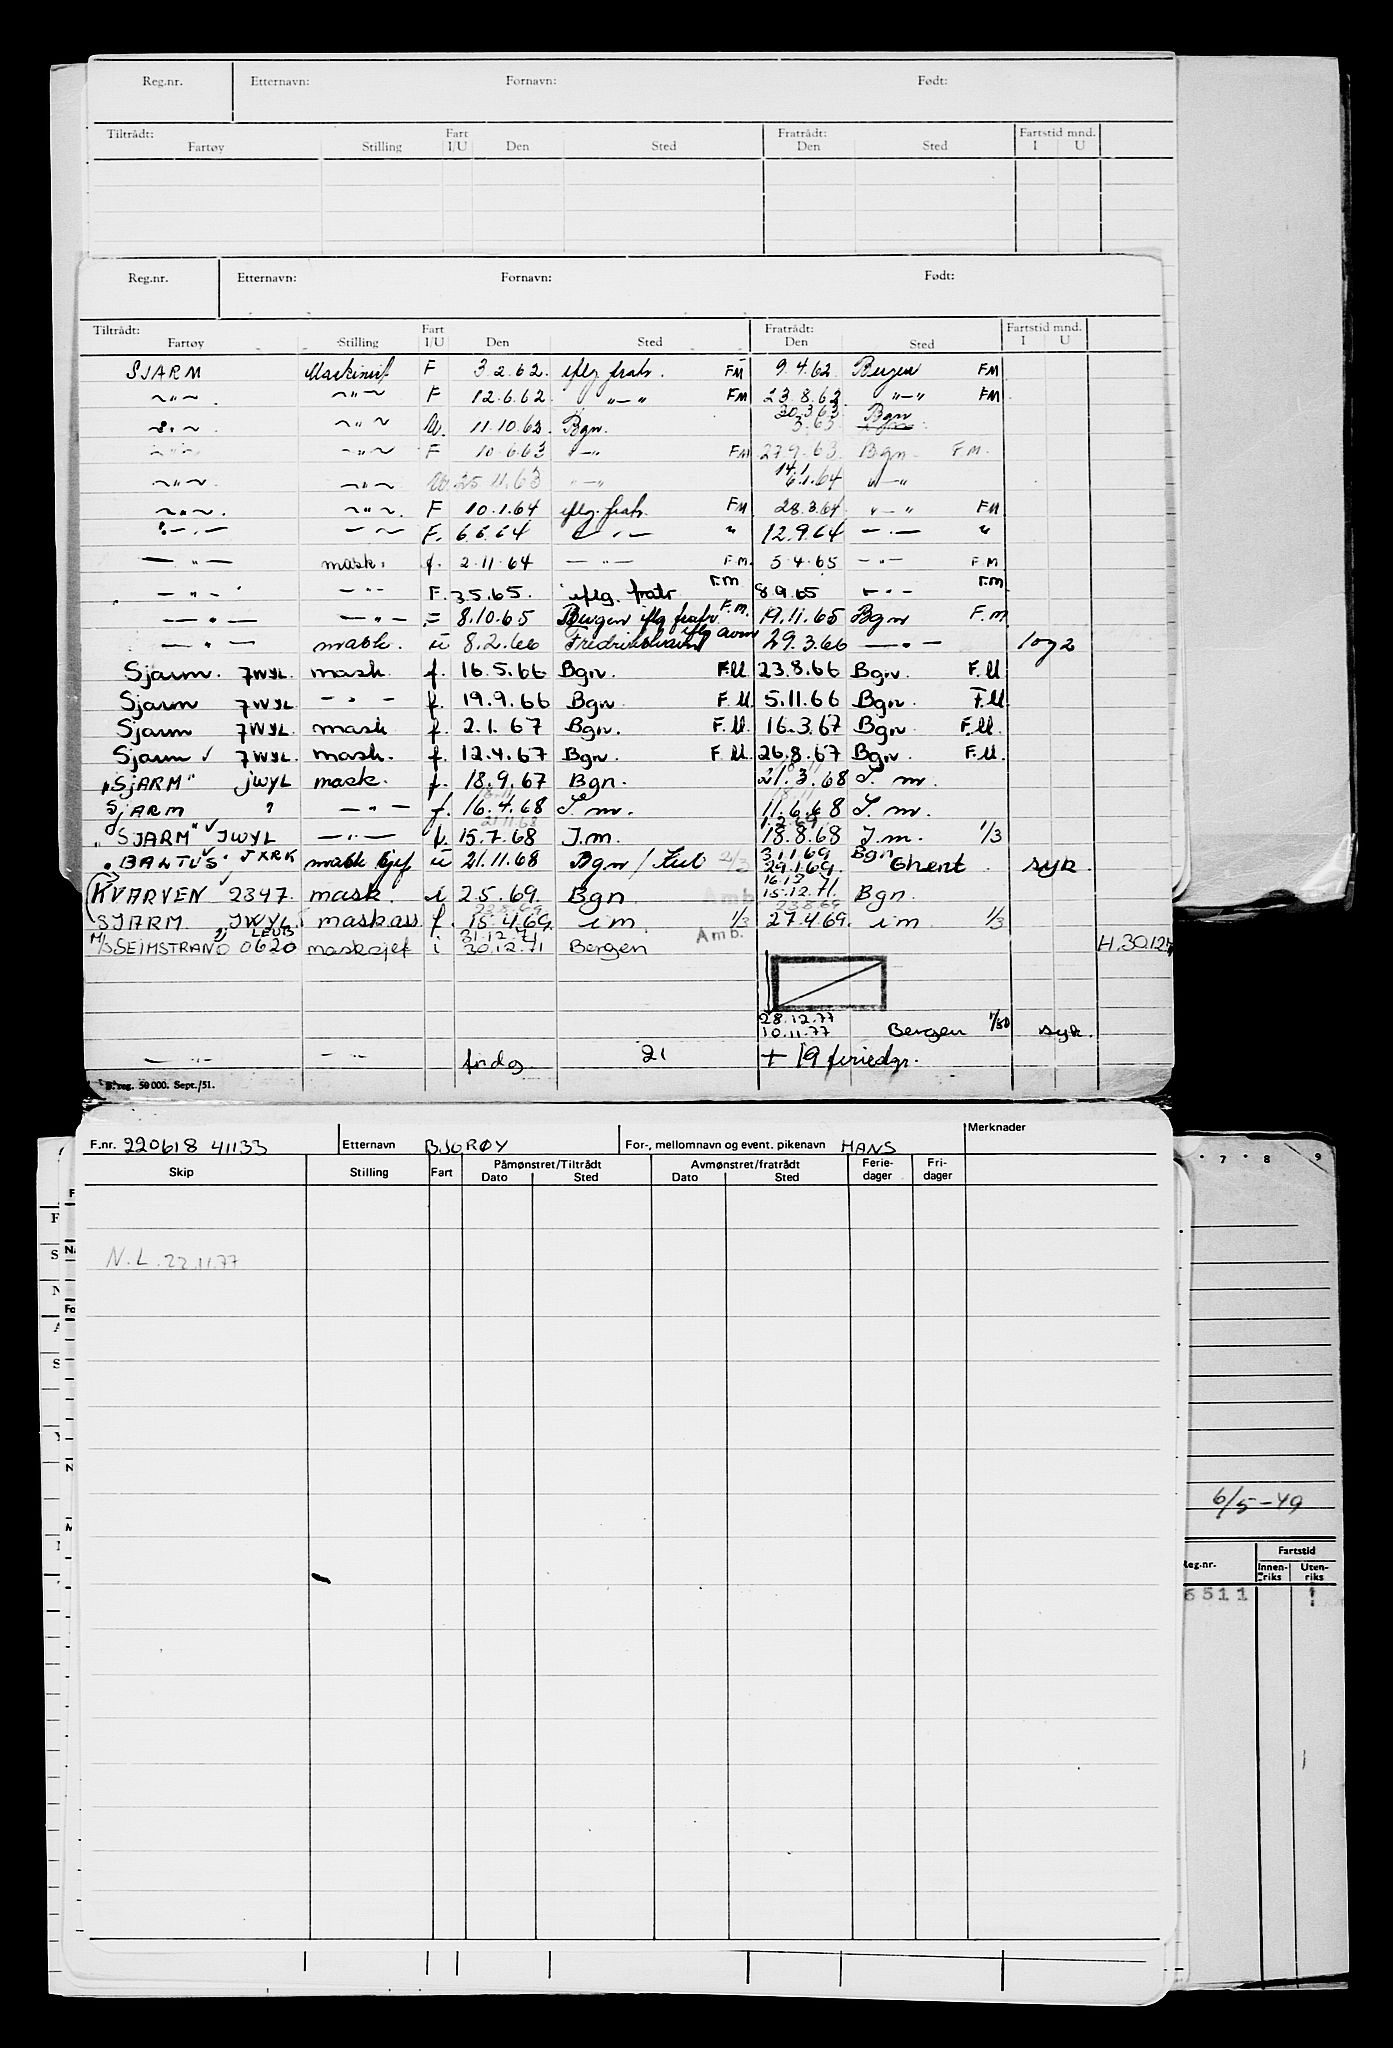 Reg.nr. Etternavn: Fornavn: Født:
Tiltrådt: Fart Fratrådt: Fartstid mnd.
Fartøy Stilling I/U Den Sted Den Sted I U
Reg.nr. Etternavn: Fornavn: Født:
Tiltrådt: Fart Fratrådt: Fartstid mnd.
Fartøy Stilling I/U Den Sted Den Sted I U
SJARM Maskinist F 3.2.62. iflg fratr. FM 9.4.62 Bergen FM
~"~ ~"~ F 12.6.62. "—" FM 23.8.62 "—" FM
~"~ ~"~ U. 11.10.62. Bgn. 30.3.63 Bgn
~"~ ~"~ F 10.6.63 "—" FM 27.9.63. Bgn. FM.
~"~ ~"~ 25.11.63 "—" 14.1.64 "—"
~"~. ~"~. F 10.1.64 iflg. fratr. FM 28.3.64 "—" FM
—"— —"~ F. 6.6.64 —"— " 12.9.64 —"— "
—"— mask. f. 2.11.64 —"— F.M. 5.4.65 —"— F.M
—"— —"— F. 3.5.65. iflg. fratr F.M 8.9.65 —"— F.M
—"— —"— = 8.10.65 Bergen iflg fratr. F.M. 19.11.65 Bgn F.M.
—"— mask. u 8.2.66 Fredrikshavn iflg avm 29.3.66 —"— 1og2
Sjarm. JWYL. mask. f. 16.5.66 Bgn. F.M 23.8.66 Bgn. F.M.
Sjarm JWYL. —"— f. 19.9.66 Bgn. F.M. 5.11.66 Bgn. F.M.
Sjarm JWYL. mask f. 2.1.67 Bgn. F.M. 16.3.67 Bgn. F.M.
Sjarm ✓ JWYL. mask. f. 12.4.67 Bgn. F.M. 26.8.67 Bgn. F.M.
"SJARM" JWYL mask. f. 18.9.67 Bgn. 21.3.68 I. m.
SJARM " —"— f. 16.4.68 I.m. 11.6.68 I.m.
"SJARM" ✓ JWYL —"— f. 15.7.68 I.m. 18.8.68 I.m. 1/3
"BALTUS" JXRK mask sjef u 21.11.68 Bgn / Kiel 2/3 3.1.69 Bgn
29.1.69. Ghent syk
KVARVEN ✓ 2347. mask. i 2.5.69. Bgn Amb. 15.12.71. Bgn.
SJARM JWYL ✓ maskass f. 15.4.69. i m 1/3 27.4.69. i m 1/3
LEUB 31.12.71 Amb.
M/S SEIMSTRAND 0620 masksjef i 30.12.71 Bergen H.30.12.
28.12.77
10.11.77 Bergen 1/30 syk.
—"— —"— frdg 21 + 19 feriedgr.
B. reg. 50000. Sept./51.
F.nr. 220618 41133 Etternavn BJORØY For-, mellomnavn og event. pikenavn HANS Merknader
Skip Stilling Fart Påmønstret/Tiltrådt Avmønstret/fratrådt Ferie- Fri-
Dato Sted Dato Sted dager dager
N.L. 22.11.77
7 8 9
6/5-49
Reg.nr. Fartstid
Innen- Uten-
riks riks
6511